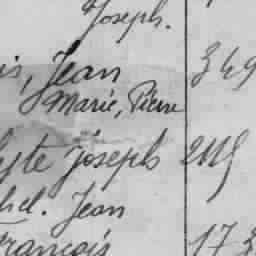 Joseph.
is, Jean 349
Marie, Pierre
lyte Joseph
hel. Jean
François 173